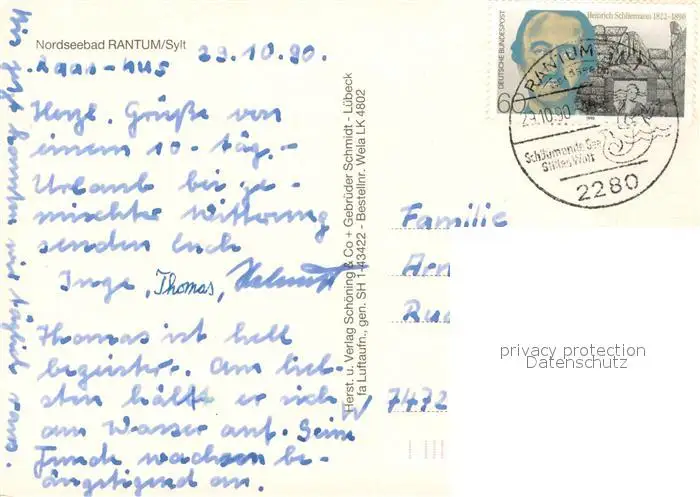 Nordseebad RANTUM/Sylt
29.10.90.
Haus
Herzl. Grüße von
einem 10-täg.-
Urlaub bei ge-
mischter Witterung
senden Euch
Inge, Thomas, Helmut
Thomas ist hell
begeistert. Am lieb-
sten hält er sich
am Wasser auf. Seine
Funde wachsen be-
ängstigend an.
Wir
Herst. u. Verlag Schöning & Co + Gebrüder Schmidt - Lübeck
fa Luftaufn., gen. SH 1-43422 - Bestellnr. Wela LK 4802
DEUTSCHE BUNDESPOST
Heinrich Schliemann 1822-1890
60
RANTUM
29.10.90
Schäumende See
Stilles Watt
2280
Familie
Arn
Ru
W 7472
privacy protection
Datenschutz